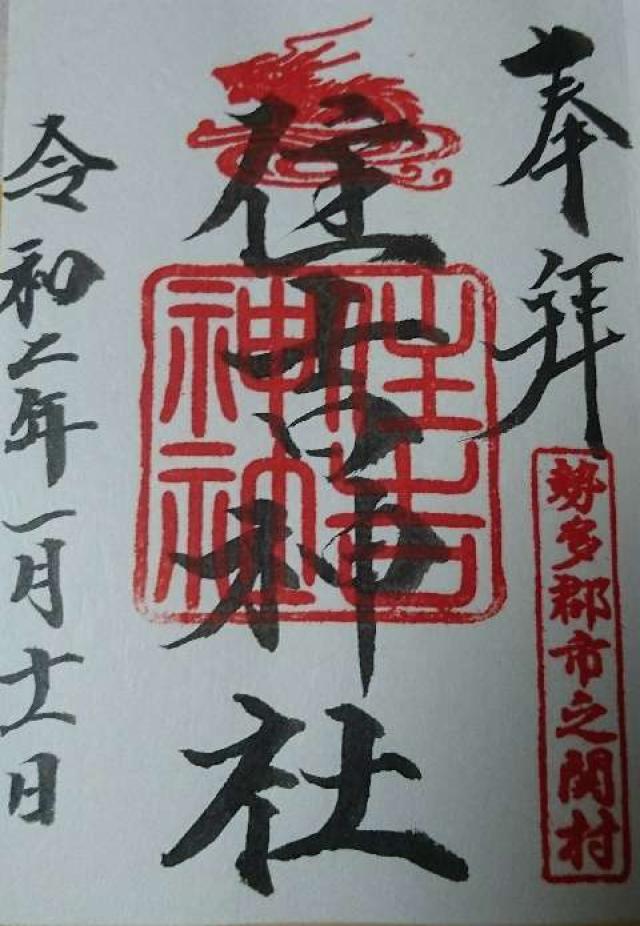 奉拝
勢多郡市之関村
住吉神社
住吉
神社
令和二年一月十一日